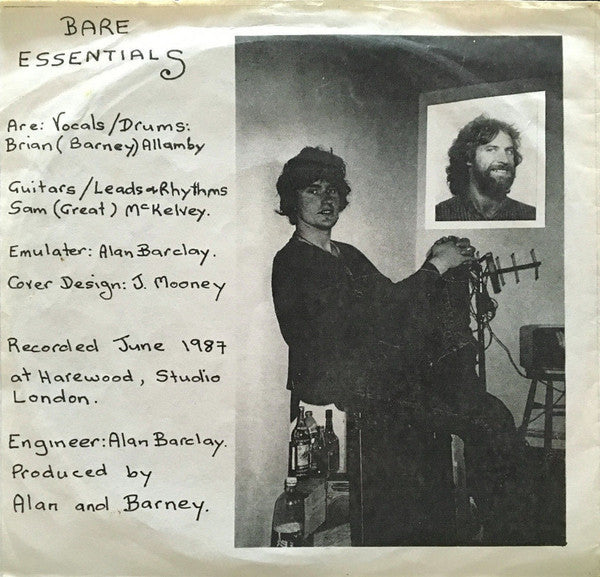 BARE
ESSENTIALS
Are: Vocals/Drums:
Brian (Barney) Allamby
Guitars/Leads + Rhythms
Sam (Great) McKelvey.
Emulater: Alan Barclay.
Cover Design: J. Mooney
Recorded June 1987
at Harewood, Studio
London.
Engineer: Alan Barclay.
Produced by
Alan and Barney.